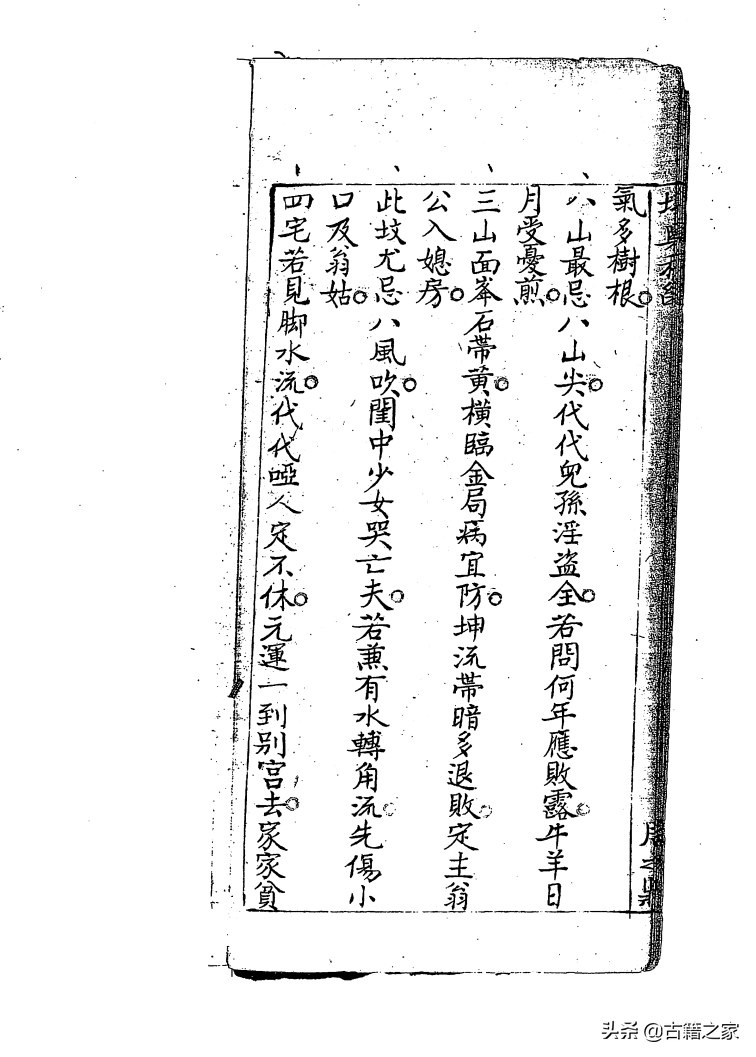 氣多樹根
八山最忌八山尖代代兒孫淫盜全若問何年應敗露牛羊日
月受憂煎
三山面峯石帶黃橫臨金局病宜防坤流帶暗多退敗定主翁
公入媳房
此坟尤忌八風吹閨中少女哭亡夫若兼有水轉角流先傷小
口及翁姑
四宅若見脚水流代代啞人定不休元運一到别宮去家家貧
头条 @古籍之家